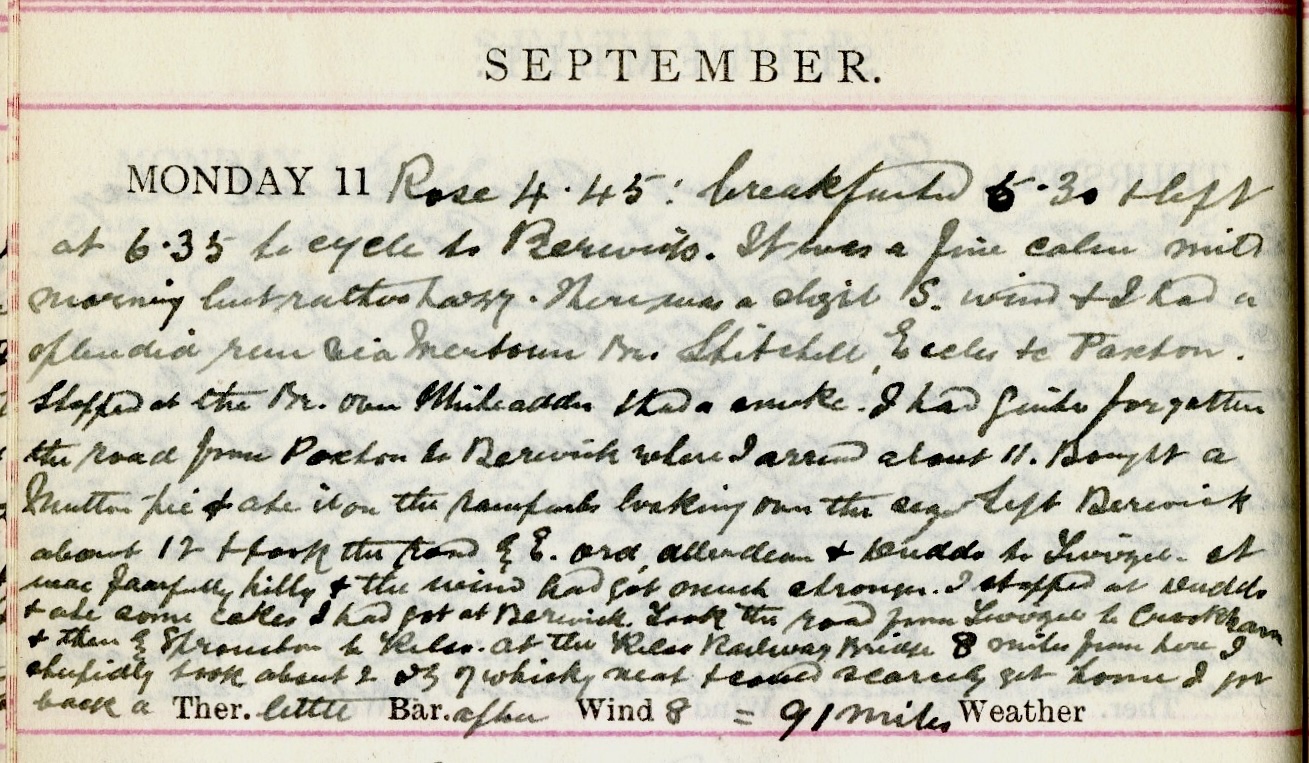 SEPTEMBER.
MONDAY 11 Rose 4.45: breakfasted 5.30 & left
at 6.35 to cycle to Berwick. It was a fine calm mild
morning but rather hazy. There was a slight S. wind & I had a
splendid run via Mertoun Br. Stitchell, Eccles to Paxton.
Stopped at the Br. over Whiteadder & had a smoke. I had quite forgotten
the road from Paxton to Berwick where I arrived about 11. Bought a
Mutton pie & ate it on the ramparts looking over the sea. Left Berwick
about 12 & took the road by E. Ord, Allerdean & Duddo to Twizel. It
was fearfully hilly & the wind had got much stronger. I stopped at Duddo
& ate some cakes I had got at Berwick. Took the road from Twizel to Crookham
& then by Sprouston to Kelso. At the Kelso Railway Bridge 8 miles from here I
stupidly took about 2 of whisky neat & could scarcely get home I got
back a Ther. little Bar. after Wind 8 = 91 miles Weather